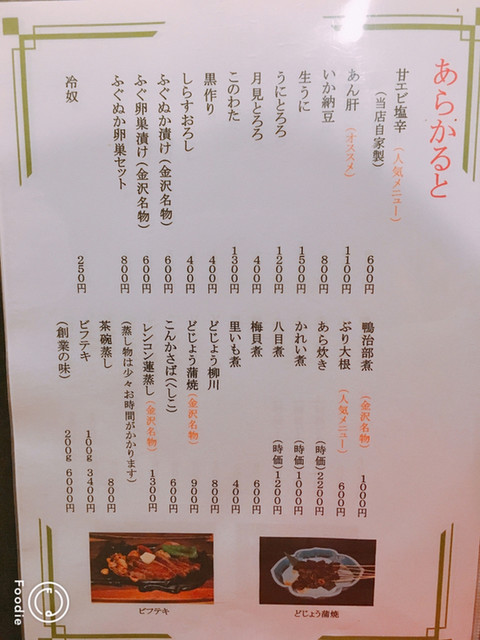 あらかると
甘エビ塩辛(人気メニュー)
(当店自家製) 600円
あん肝(オススメ) 1100円
いか納豆 800円
生うに 1500円
うにとろろ 1200円
月見とろろ 400円
このわた 1300円
黒作り 400円
しらすおろし 400円
ふぐぬか漬け(金沢名物) 600円
ふぐ卵巣漬け(金沢名物) 600円
ふぐぬか卵巣セット 800円
冷奴 250円
鴨治部煮(金沢名物) 1000円
ぶり大根(人気メニュー) 600円
あら炊き(時価)2200円
かれい煮(時価)1000円
八目煮(時価)1200円
梅貝煮 600円
里いも煮 400円
どじょう柳川 800円
どじょう蒲焼(金沢名物) 900円
こんかさば(へしこ) 600円
レンコン蓮蒸し(金沢名物) 1300円
(蒸し物は少々お時間がかかります)
茶碗蒸し 800円
ビフテキ 100g 3400円
(創業の味) 200g 6000円
どじょう蒲焼
ビフテキ
Foodie